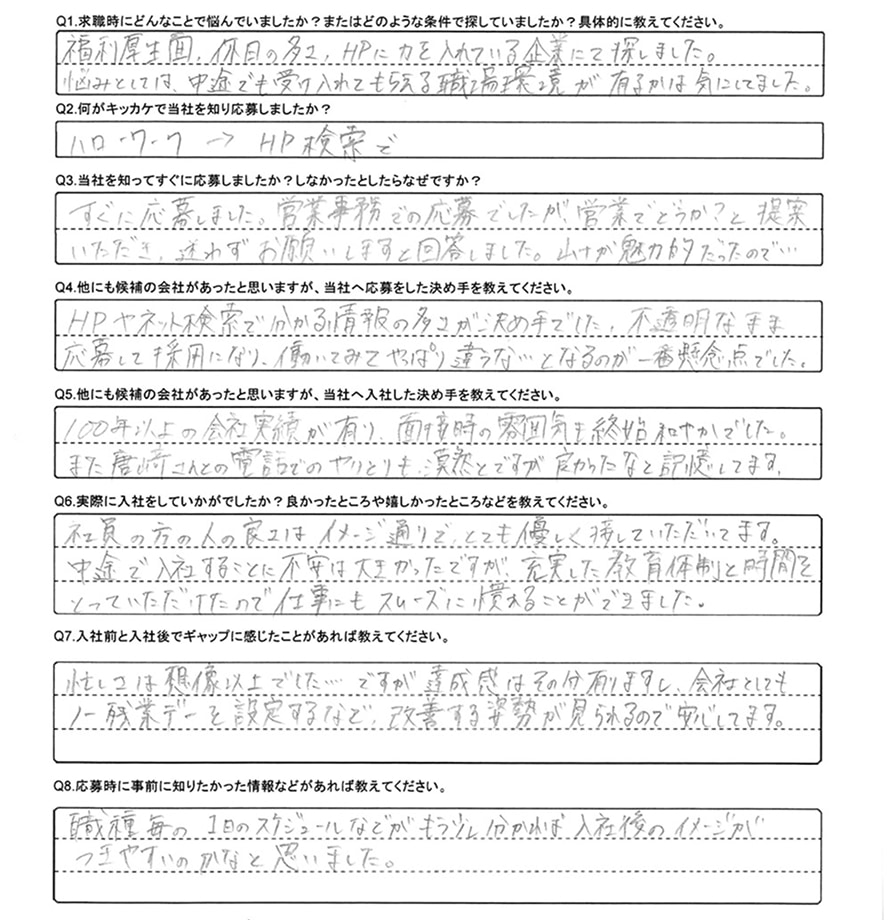 Q1.求職時にどんなことで悩んでいましたか？またはどのような条件で探していましたか？具体的に教えてください。
福利厚生面、休日の多さ、HPに力を入れている企業にて探しました。
悩みとしては、中途でも受け入れてもらえる職場環境が有るかは気にしてました。
Q2.何がキッカケで当社を知り応募しましたか？
ハローワーク → HP検索で
Q3.当社を知ってすぐに応募しましたか？しなかったとしたらなぜですか？
すぐに応募しました。営業事務での応募でしたが、営業でどうか？と提案
いただき、迷わずお願いしますと回答しました。 が魅力的だったので…
Q4.他にも候補の会社があったと思いますが、当社へ応募をした決め手を教えてください。
HPやネット検索で分かる情報の多さが決め手でした。不透明なまま
応募して採用になり、働いてみてやっぱり違うな…となるのが一番懸念点でした。
Q5.他にも候補の会社があったと思いますが、当社へ入社した決め手を教えてください。
100年以上の会社実績が有り、面接時の雰囲気も終始和やかでした。
また唐崎さんとの電話でのやりとりも、漠然とですが良かったなと記憶してます。
Q6.実際に入社をしていかがでしたか？良かったところや嬉しかったところなどを教えてください。
社員の方の人の良さはイメージ通りで、とても優しく接していただいてます。
中途で入社することに不安は大きかったですが、充実した教育体制と時間を
とっていただけたので仕事にもスムーズに慣れることができました。
Q7.入社前と入社後でギャップに感じたことがあれば教えてください。
忙しさは想像以上でした… ですが達成感はその分有りますし、会社としても
ノー残業デーを設定するなど、改善する姿勢が見られるので安心してます。
Q8.応募時に事前に知りたかった情報などがあれば教えてください。
職種毎の1日のスケジュールなどがもう少し分かれば入社後のイメージが
つきやすいのかなと思いました。